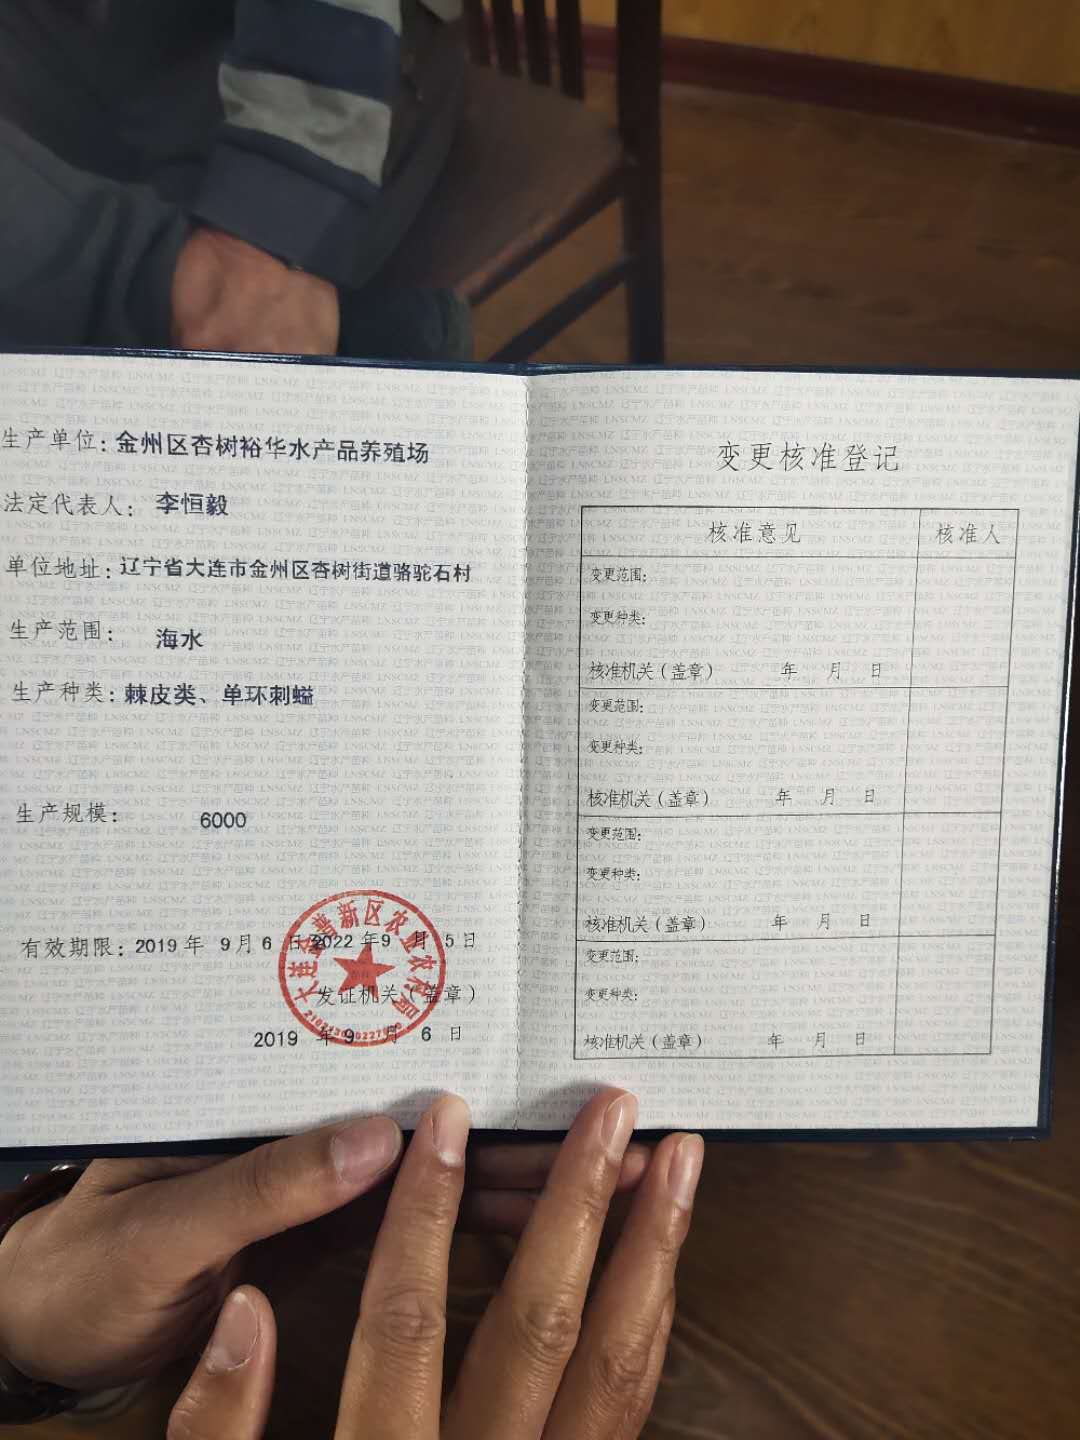 生产单位：金州区杏树裕华水产品养殖场
法定代表人：李恒毅
单位地址：辽宁省大连市金州区杏树街道骆驼石村
生产范围：海水
生产种类：棘皮类、单环刺螠
生产规模：6000
有效期限：2019 年 9 月 6 日 2022 年 9 月 5 日
发证机关（盖章）
2019 年 9 月 6 日
大连金普新区农业农村局
变更核准登记
核准意见 核准人
变更范围：
变更种类：
核准机关（盖章） 年 月 日
变更范围：
变更种类：
核准机关（盖章） 年 月 日
变更范围：
变更种类：
核准机关（盖章） 年 月 日
变更范围：
变更种类：
核准机关（盖章） 年 月 日
辽宁水产苗种 LNSCMZ